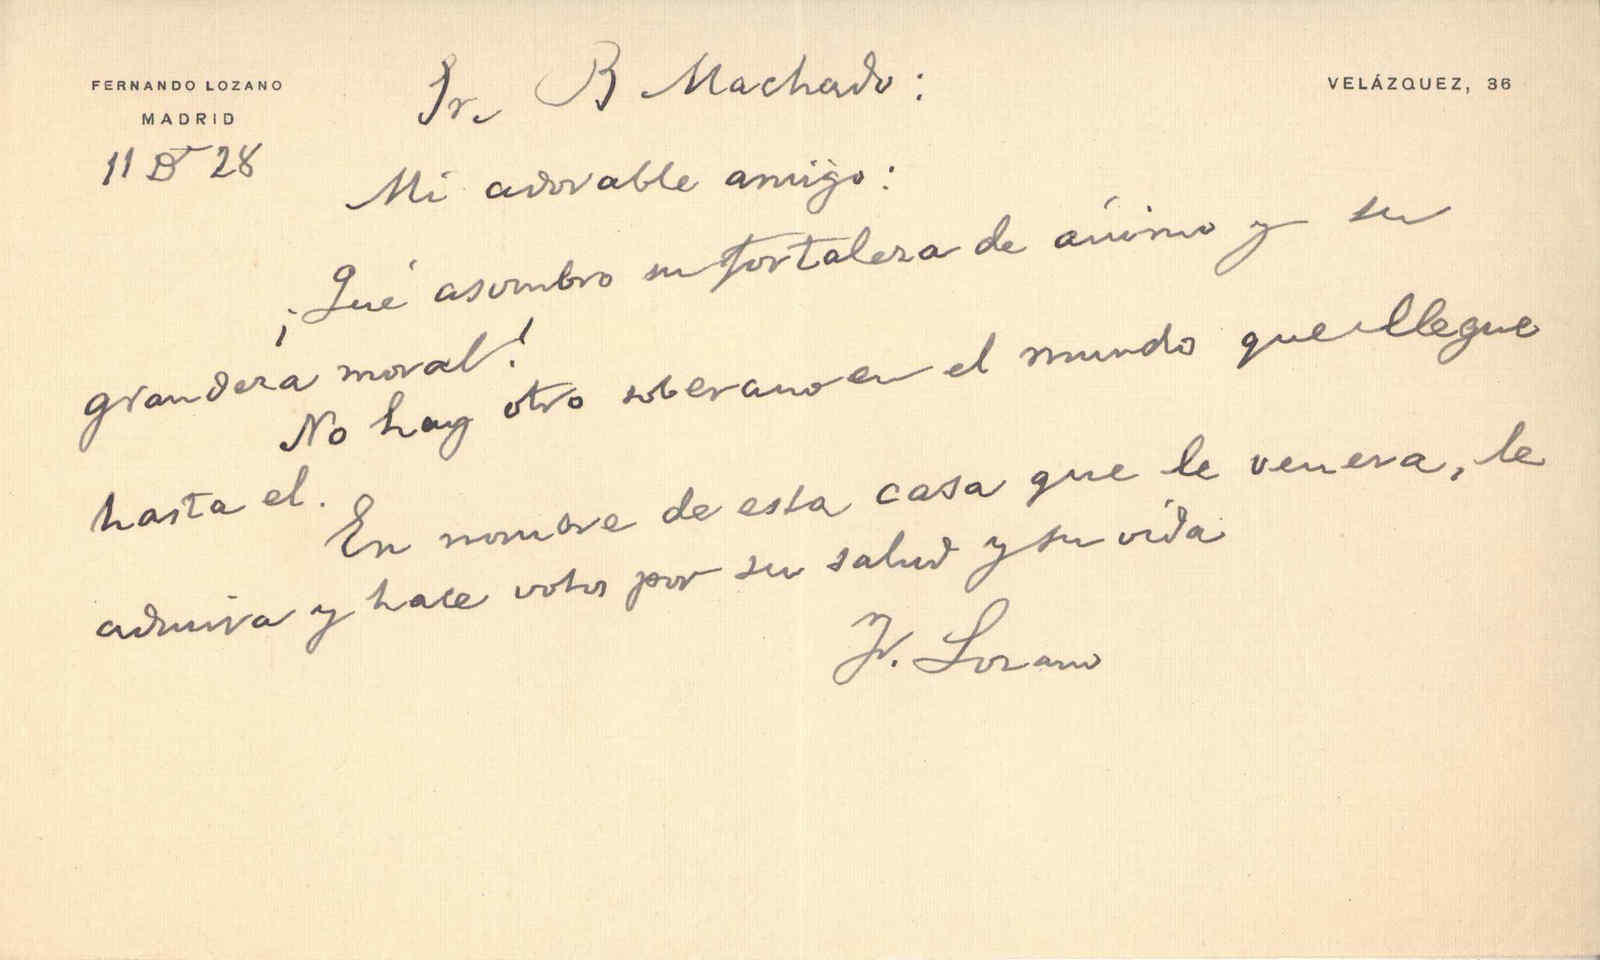 FERNANDO LOZANO
MADRID
VELÁZQUEZ, 36
11 Dº 28
Sr. B Machado:
Mi adorable amigo:
¡Qué asombro su fortaleza de ánimo y su
grandeza moral!
No hay otro soberano en el mundo que llegue
hasta el.
En nombre de esta casa que le venera, le
admira y hace votos por su salud y su vida
F. Lozano